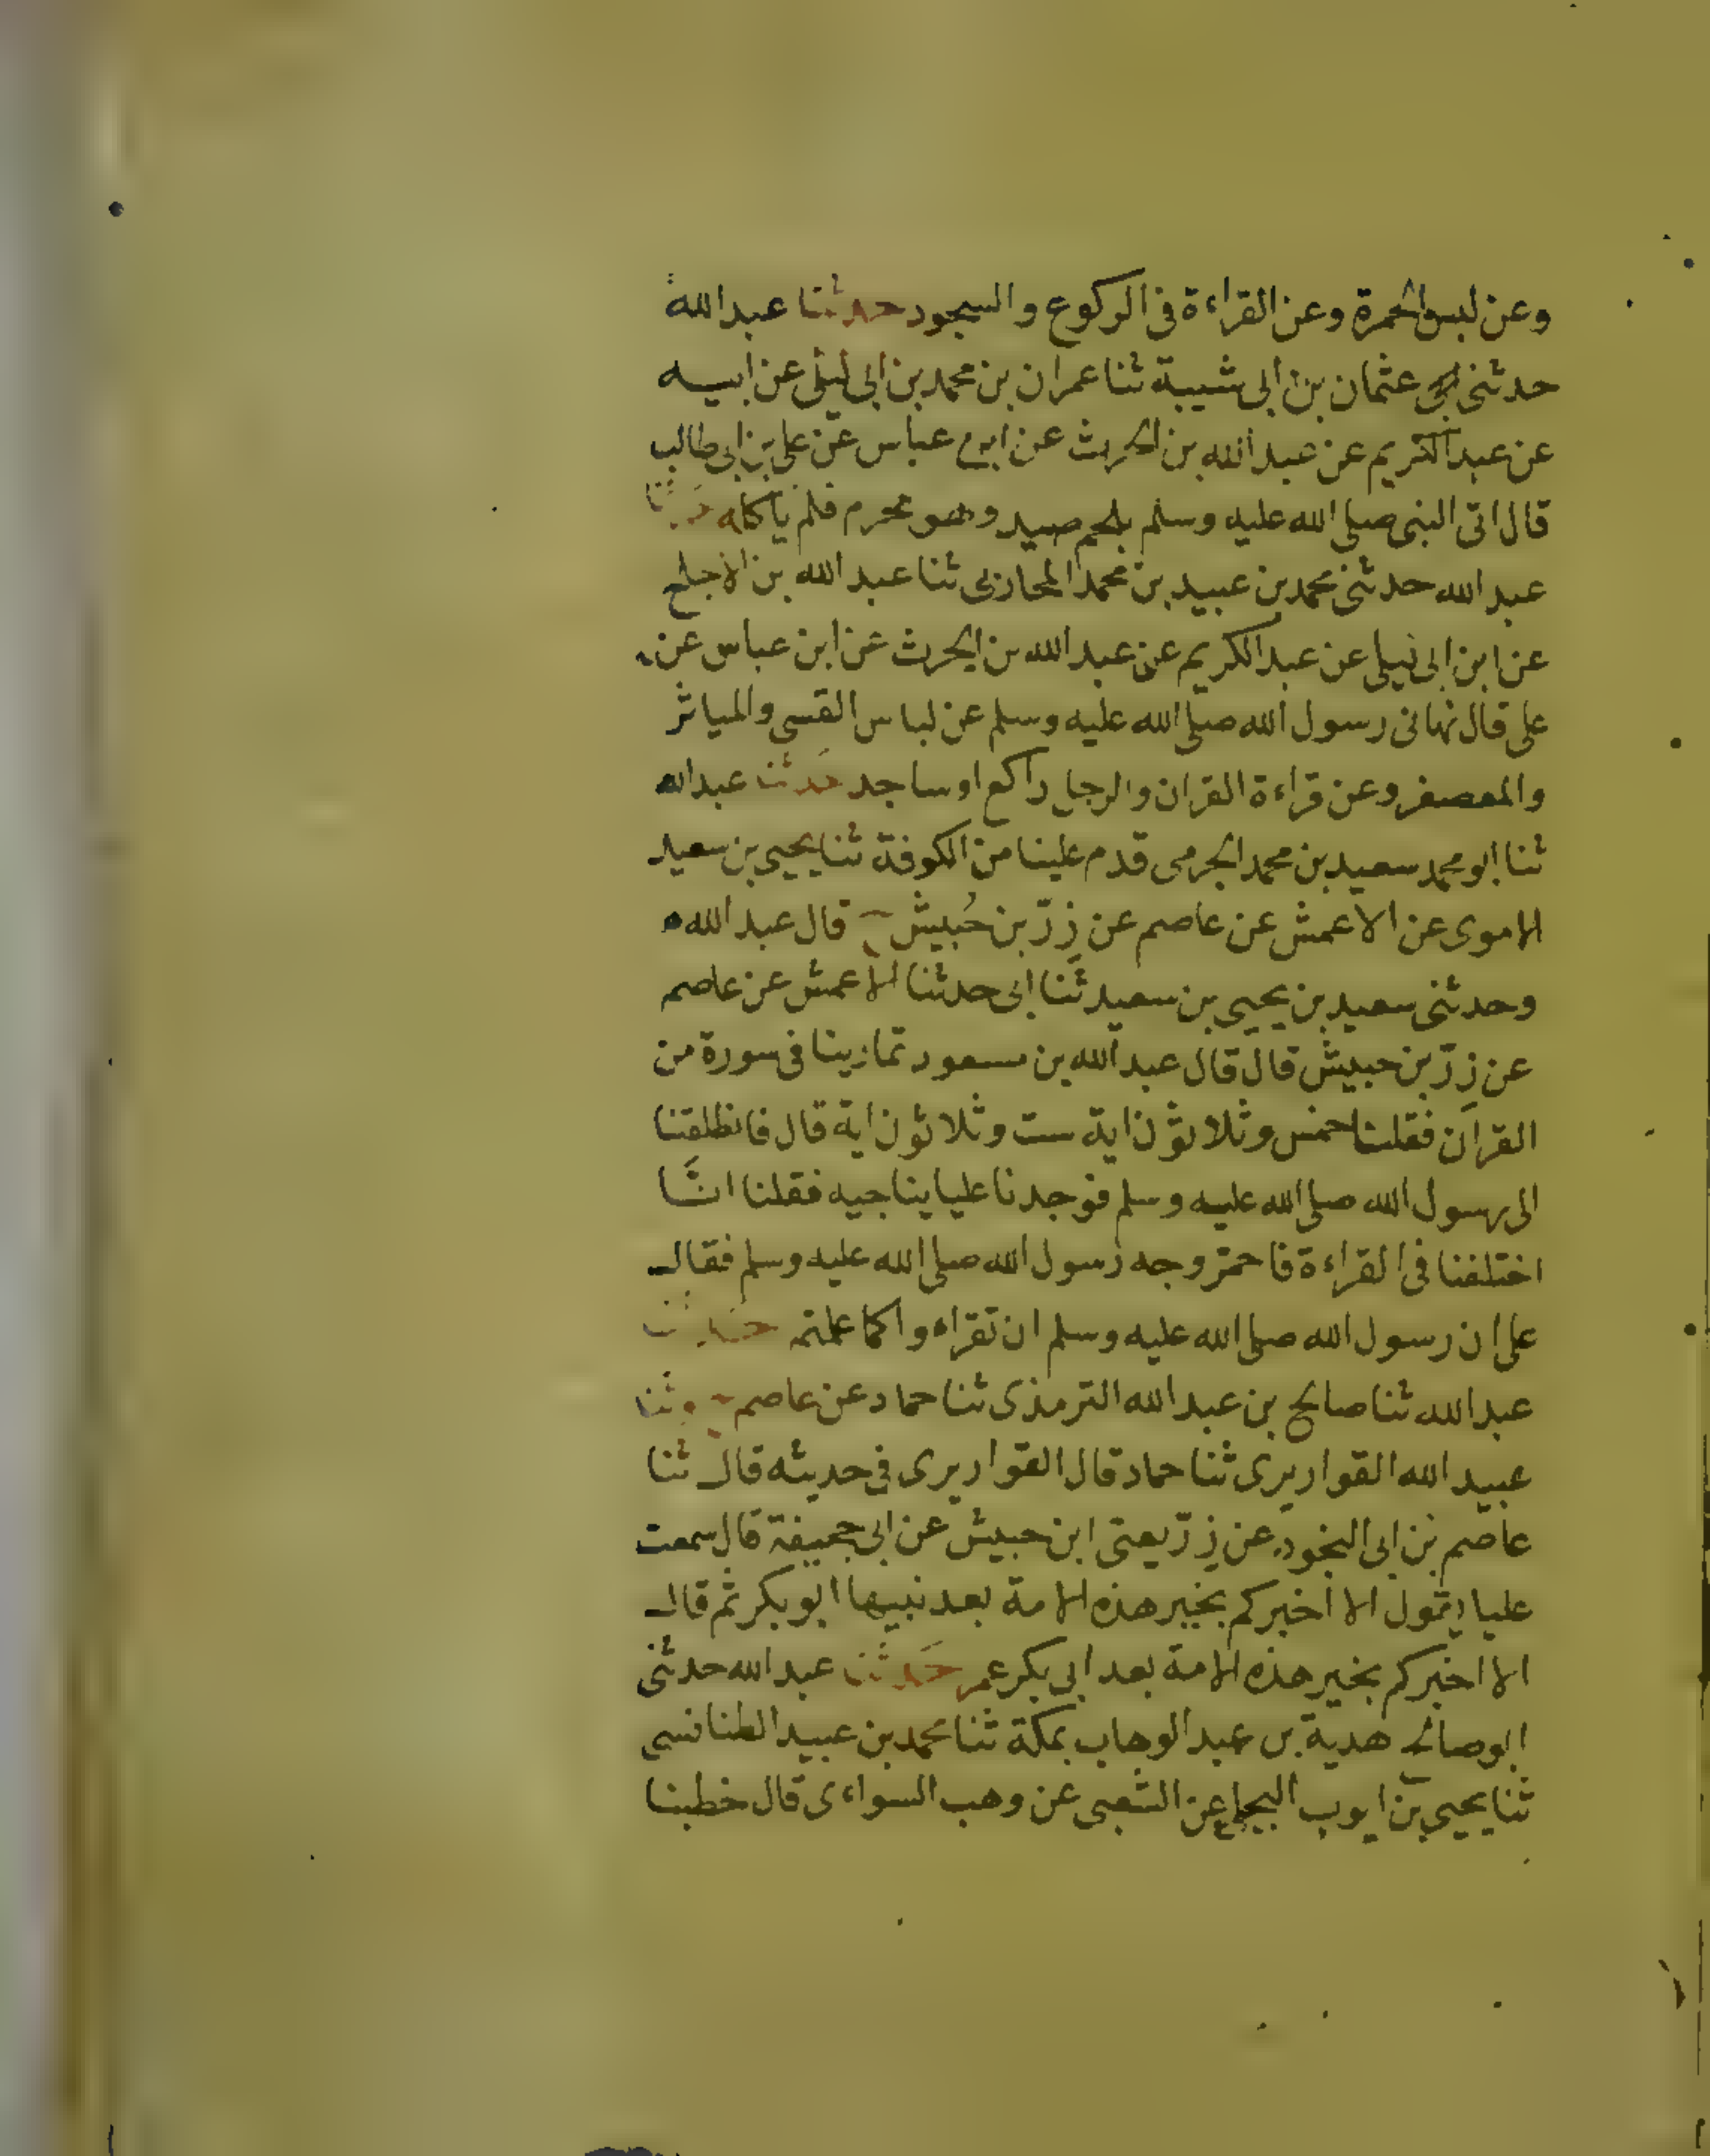 وعن لبس الحمرة وعن القراءة فى الركوع والسجود حدثنا عبد الله
حدثنى عثمان بن ابى شيبة ثنا عمران بن محمد بن ابى ليلى عن ابيه
عن عبد الكريم عن عبد الله بن الحرث عن ابن عباس عن على بن ابى طالب
قال اتى النبى صلى الله عليه وسلم بلحم صيد وهو محرم فلم ياكله حدثنا
عبد الله حدثنى محمد بن عبيد بن محمد المحاربى ثنا عبد الله بن الاجلح
عن ابن ابى ليلى عن عبد الكريم عن عبد الله بن الحرث عن ابن عباس عن
على قال نهانى رسول الله صلى الله عليه وسلم عن لباس القسى والمياثر
والمعصفر وعن قراءة القران والرجل راكع او ساجد حدثنا عبد الله
ثنا ابو محمد سعيد بن محمد الجرمى قدم علينا من الكوفة ثنا يحيى بن سعيد
الاموى عن الاعمش عن عاصم عن زِرّ بن حُبيش ح قال عبد الله
وحدثنى سعيد بن يحيى بن سعيد ثنا ابى حدثنا الاعمش عن عاصم
عن زِرّ بن حبيش قال قال عبد الله بن مسعود تمارينا فى سورة من
القران فقلنا خمس وثلاثون اية ست وثلاثون اية قال فانطلقنا
الى رسول الله صلى الله عليه وسلم فوجدنا عليا يناجيه فقلنا انَّا
اختلفنا فى القراءة فاحمرّ وجه رسول الله صلى الله عليه وسلم فقال
على ان رسول الله صلى الله عليه وسلم ان تقراءوا كما علمتم حدثنا
عبد الله ثنا صالح بن عبد الله الترمذى ثنا حماد عن عاصم ح وثنا
عبيد الله القواريرى ثنا حماد قال القواريرى فى حديثه قال ثنا
عاصم بن ابى النجود عن زِرّ يعنى ابن حبيش عن ابى جحيفة قال سمعت
عليا يقول الا اخبركم بخير هذه الامة بعد نبيها ابو بكر ثم قال
الا اخبركم بخير هذه الامة بعد ابى بكر عمر حدثنا عبد الله حدثنى
ابو صالح هدية بن عبد الوهاب بمكة ثنا محمد بن عبيد الطنافسى
ثنا يحيى بن ايوب البجلى عن الشعبى عن وهب السواءى قال خطبنا